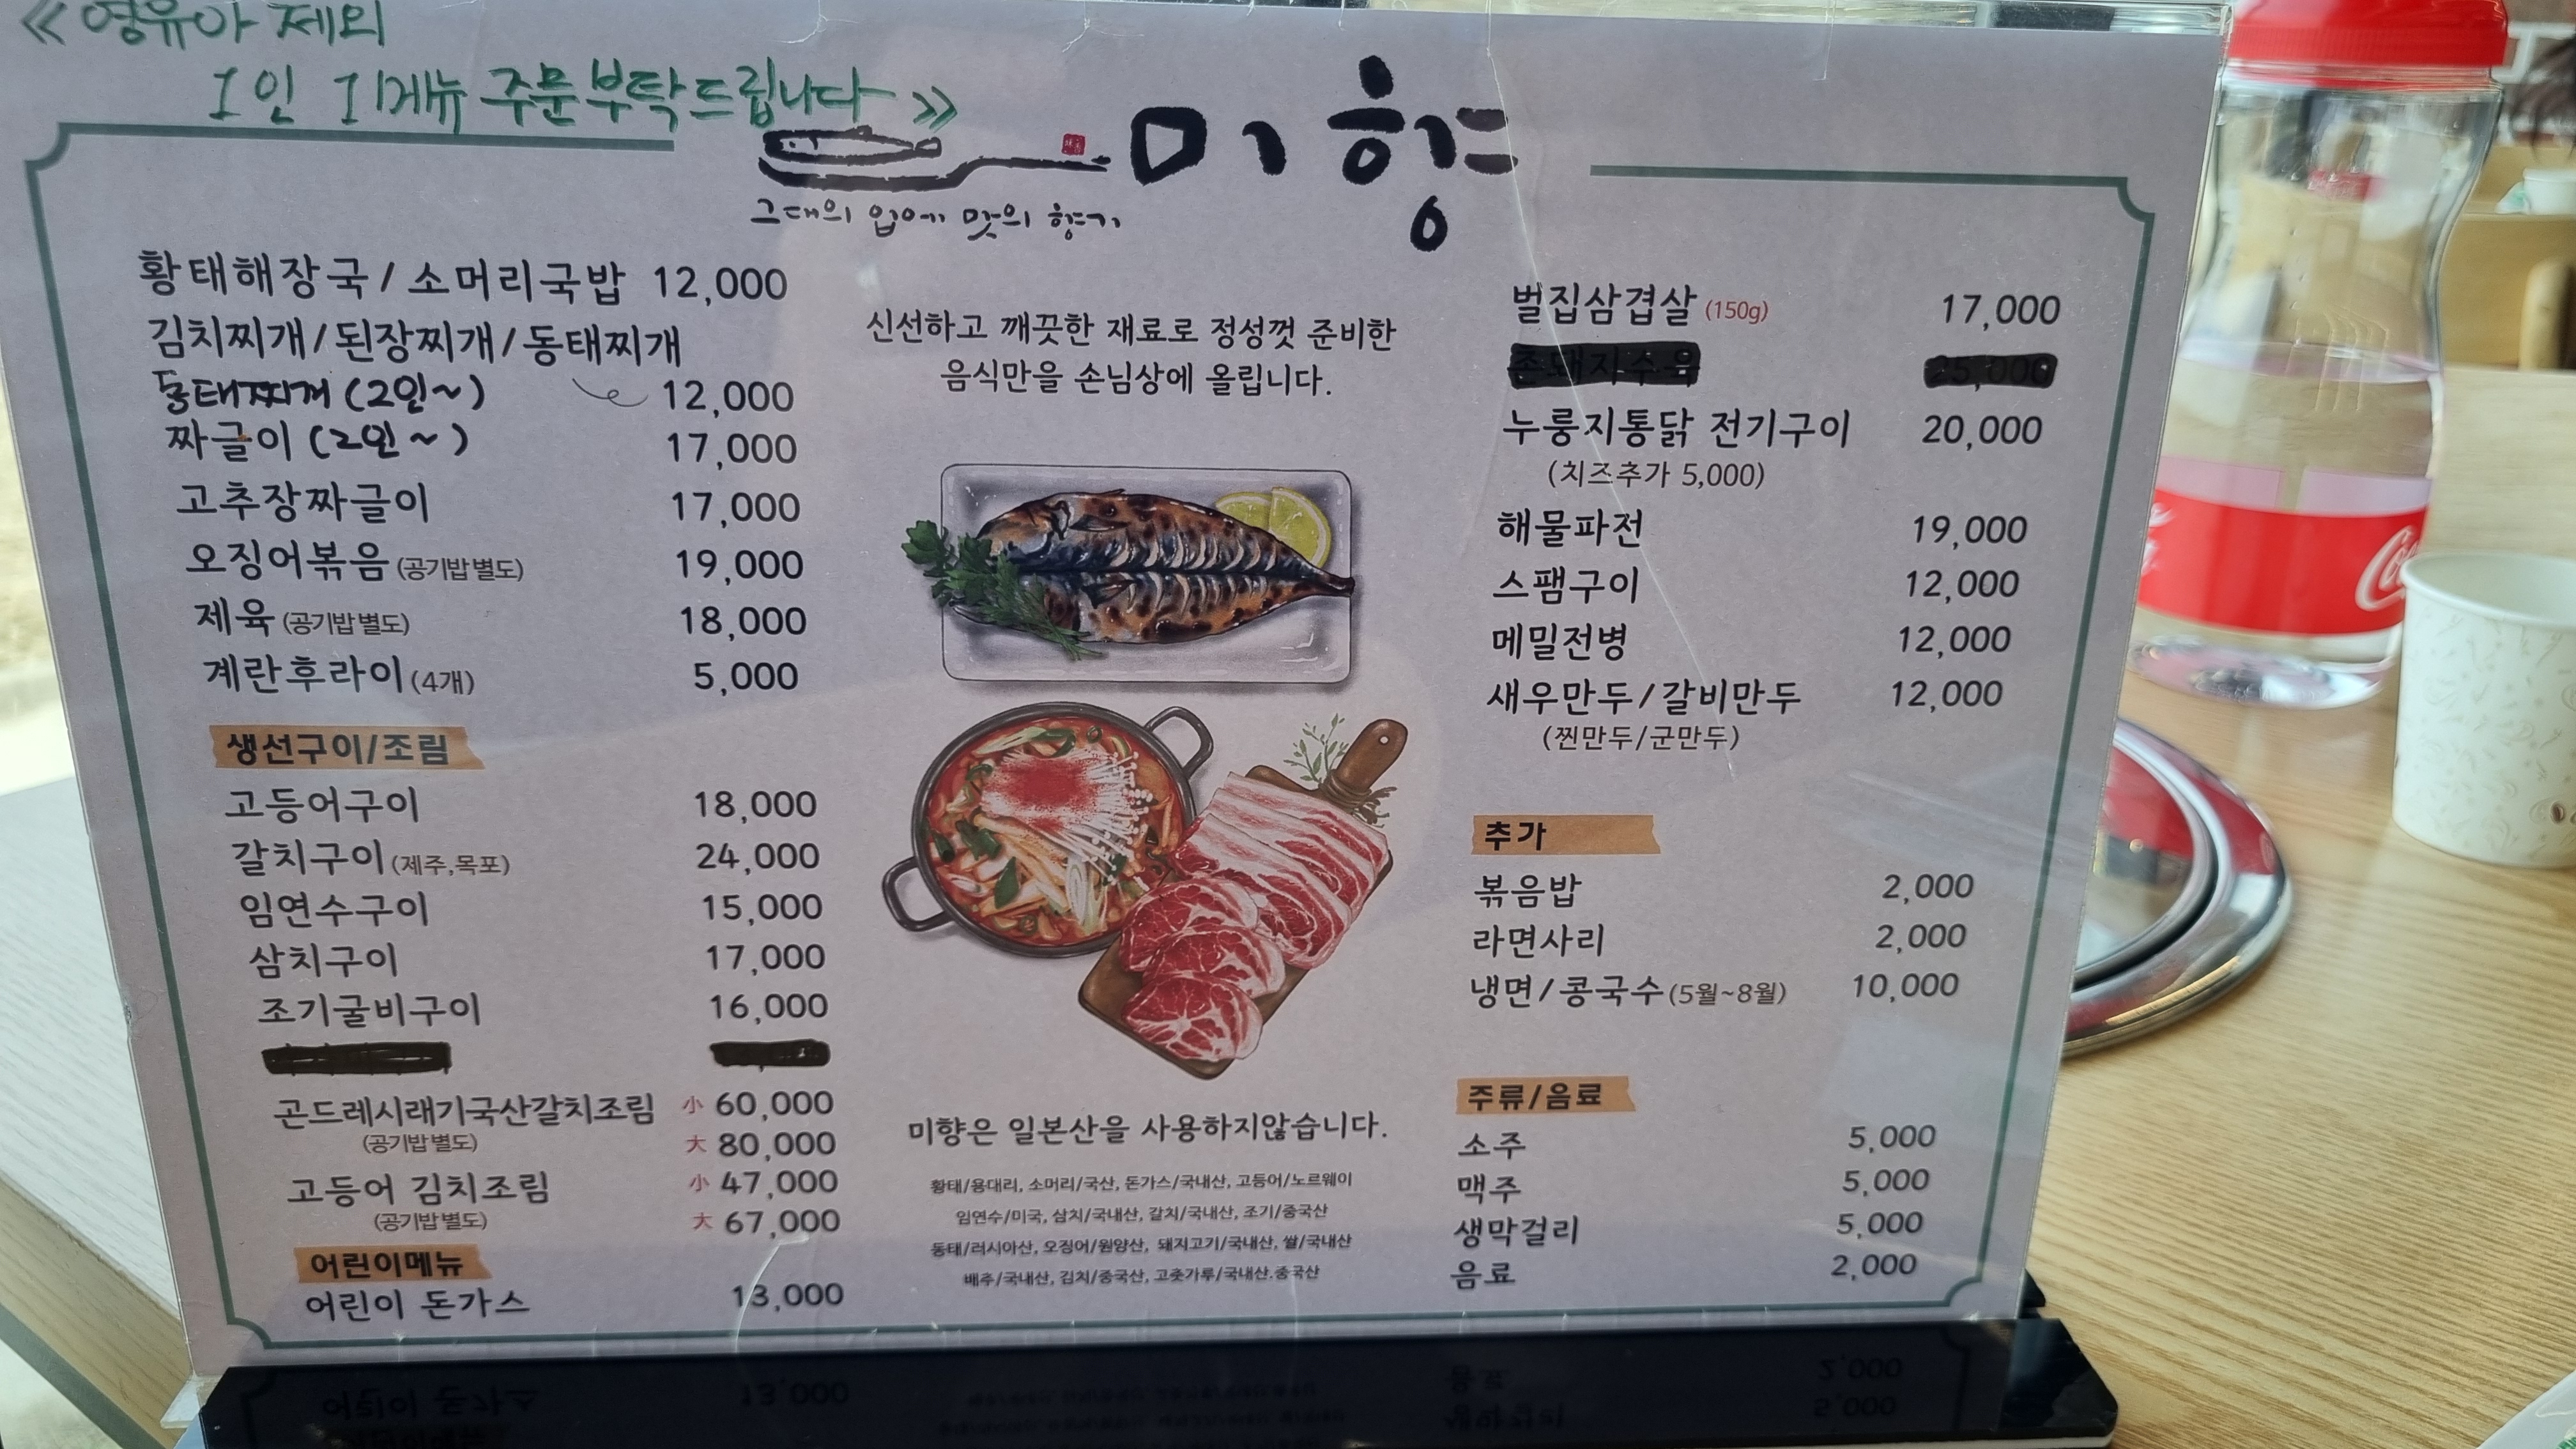 ≪ 영유아 제외
1인 1메뉴 주문부탁드립니다 ≫
미향
그대의 입에 맛의 향기
황태해장국/소머리국밥 12,000
김치찌개/된장찌개/동태찌개
동태찌개 (2인~) 12,000
짜글이 (2인~) 17,000
고추장짜글이 17,000
오징어볶음 (공기밥 별도) 19,000
제육 (공기밥 별도) 18,000
계란후라이 (4개) 5,000
생선구이/조림
고등어구이 18,000
갈치구이 (제주,목포) 24,000
임연수구이 15,000
삼치구이 17,000
조기굴비구이 16,000
곤드레시래기국산갈치조림 小 60,000
(공기밥 별도) 大 80,000
고등어 김치조림 小 47,000
(공기밥 별도) 大 67,000
어린이메뉴
어린이 돈가스 13,000
신선하고 깨끗한 재료로 정성껏 준비한
음식만을 손님상에 올립니다.
미향은 일본산을 사용하지않습니다.
황태/용대리, 소머리/국산, 돈가스/국내산, 고등어/노르웨이
임연수/미국, 삼치/국내산, 갈치/국내산, 조기/중국산
동태/러시아산, 오징어/원양산, 돼지고기/국내산, 쌀/국내산
배추/국내산, 김치/중국산, 고춧가루/국내산.중국산
벌집삼겹살 (150g) 17,000
촌돼지수육 25,000
누룽지통닭 전기구이 20,000
(치즈추가 5,000)
해물파전 19,000
스팸구이 12,000
메밀전병 12,000
새우만두/갈비만두 12,000
(찐만두/군만두)
추가
볶음밥 2,000
라면사리 2,000
냉면/콩국수 (5월~8월) 10,000
주류/음료
소주 5,000
맥주 5,000
생막걸리 5,000
음료 2,000